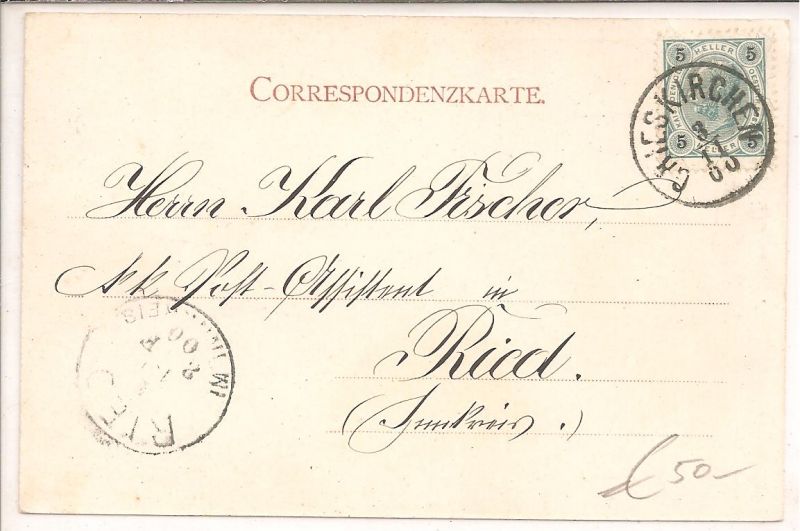 CORRESPONDENZKARTE.
5 HELLER 5
5 5
GRIESKIRCHEN
3/11
00
Herrn Karl Fischer,
k k Post-Assistent in
Ried.
(Innkreis.)
RIED IM INNKREIS
00
£ 50-